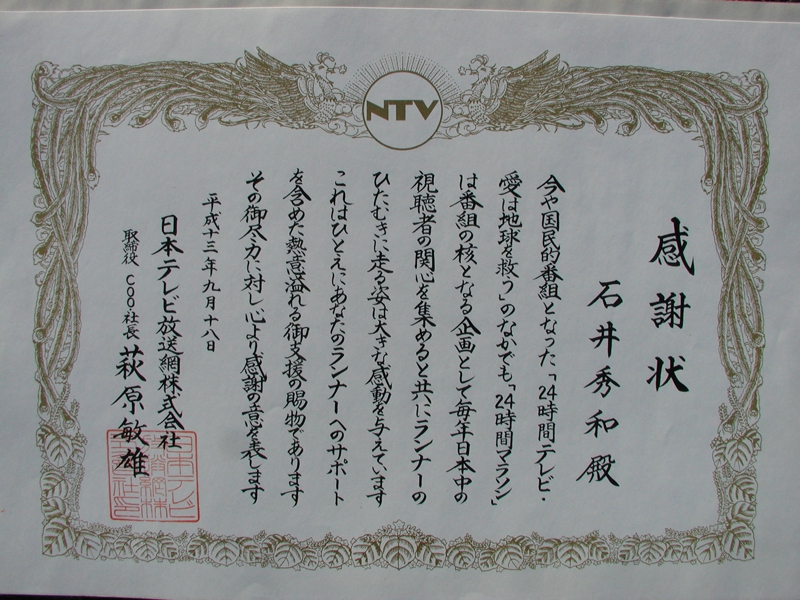 NTV
感謝状
石井秀和殿
今や国民的番組となった「24時間テレビ・
愛は地球を救う」のなかでも「24時間マラソン」
は番組の核となる企画として毎年日本中の
視聴者の関心を集めると共にランナーの
ひたむきに走る姿は大きな感動を与えています
これはひとえにあなたのランナーへのサポート
を含めた熱意溢れる御支援の賜物であります
その御尽力に対し心より感謝の意を表します
平成十三年九月十八日
日本テレビ放送網株式会社
取締役 COO・社長 萩原敏雄